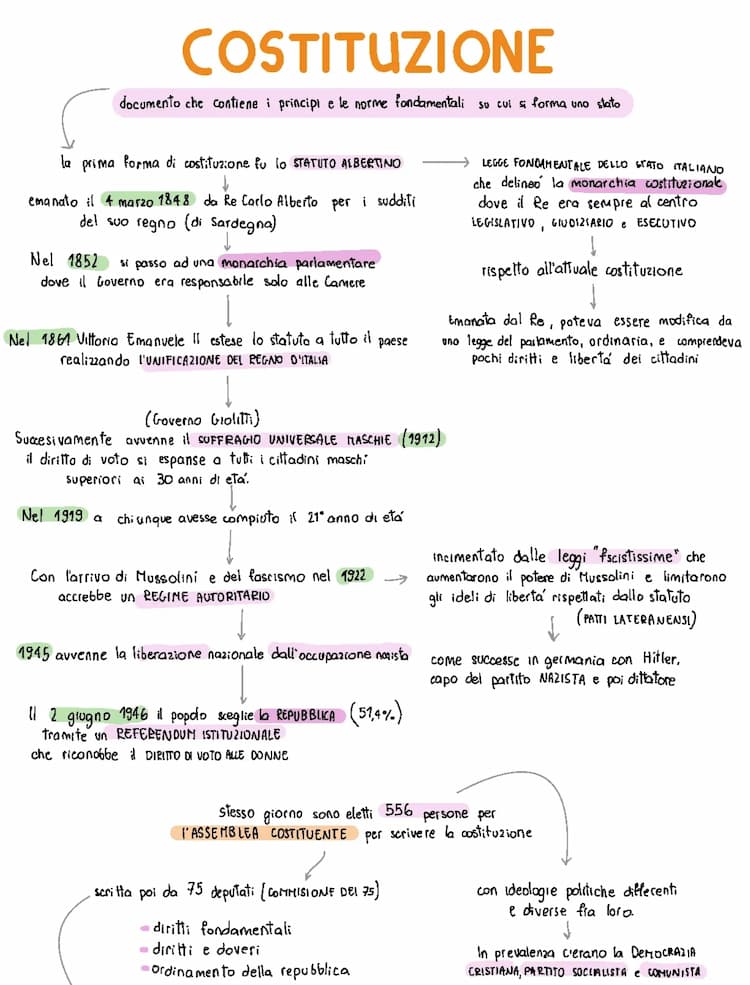 COSTITUZIONE
documento che contiene i principi e le norme fondamentali su cui si forma uno stato
la prima forma di costituzione fu lo STATUTO ALBERTINO
emanato il 4 marzo 1848 da Re Carlo Alberto per i sudditi
del suo regno (di Sardegna)
Nel 1852 si passo ad una monarchia parlamentare
dove il Governo era responsabile solo alle Camere
Nel 1861 Vittorio Emanuele II estese lo statuto a tutto il paese
realizzando l'UNIFICAZIONE DEL REGNO D'ITALIA
LEGGE FONDAMENTALE DELLO STATO ITALIANO
che delineó la monarchia costituzionale
dove il Re era sempre al centro
LEGISLATIVO, GIUDIZIARIO e ESECUTIVO
rispetto all'attuale costituzione
Emanata dal Re, poteva essere modifica da
una legge del parlamento, ordinaria, e comprendeva
pochi diritti e libertá dei cittadini
(Governo Giolitti)
Sucesivamente avvenne il SUFFRAGIO UNIVERSALE MASCHIE (1912)
il diritto di voto si espanse a tutti i cittadini maschi
superiori ai 30 anni di etá.
Nel 1919 a chiunque avesse compiuto il 21° anno di etá
Con l'arrivo di Mussolini e del fascismo nel 1922
accrebbe un REGIME AUTORITARIO
incimentato dalle leggi "fscistissime" che
aumentarono il potere di Mussolini e limitarono
gli ideli di libertá rispettati dallo statuto
(PATTI LATERANENSI)
come successe in germania con Hitler,
capo del partito NAZISTA e poi dittatore
1945 avvenne la liberazione nazionale dall'occupazione nasista
Il 2 giugno 1946 il popolo sceglie la REPUBBLICA (51,4%)
tramite un REFERENDUM ISTITUZIONALE
che riconobbe il DIRITTO DI VOTO ALLE DONNE
Stesso giorno sono eletti 556 persone per
l'ASSEMBLEA COSTITUENTE per scrivere la costituzione
scritta poi da 75 deputati [COMMISIONE DEI 75)
diritti fondamentali
diritti e doveri
ordinamento della repubblica
con ideologie politiche differenti
e diverse fra loro.
In prevalenza c'erano la DEMOCRAZIA
CRISTIANA, PARTITO SOCIALISTA e COMUNISTA